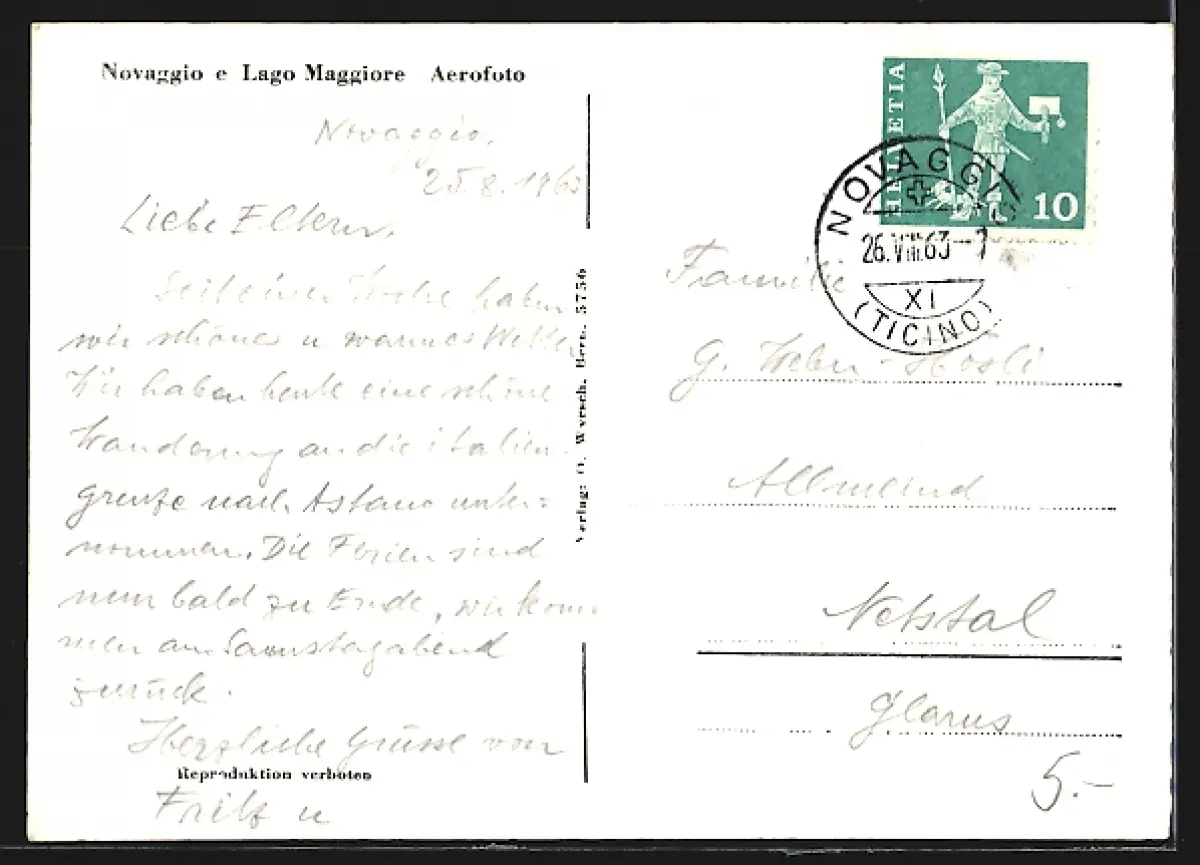 Novaggio e Lago Maggiore Aerofoto
Novaggio,
25.8.1963
Liebe Eltern,
Seit einer Woche haben
wir schönes u warmes Wetter
Wir haben heute eine schöne
Wanderung an die italien.
grenze nach Astano unter=
nommen. Die Ferien sind
nun bald zu Ende, wir kom
men am Samstagabend
zurück.
Herzliche Grüsse von
Reproduktion verboten
Fritz u
Verlag: O. Wyrsch, Bern. 5756
HELVETIA
10
NOVAGGIO
26.VIII.63-7
XI
(TICINO)
Familie
G. Weber-Hösli
Allmeind
Netstal
Glarus
5.-